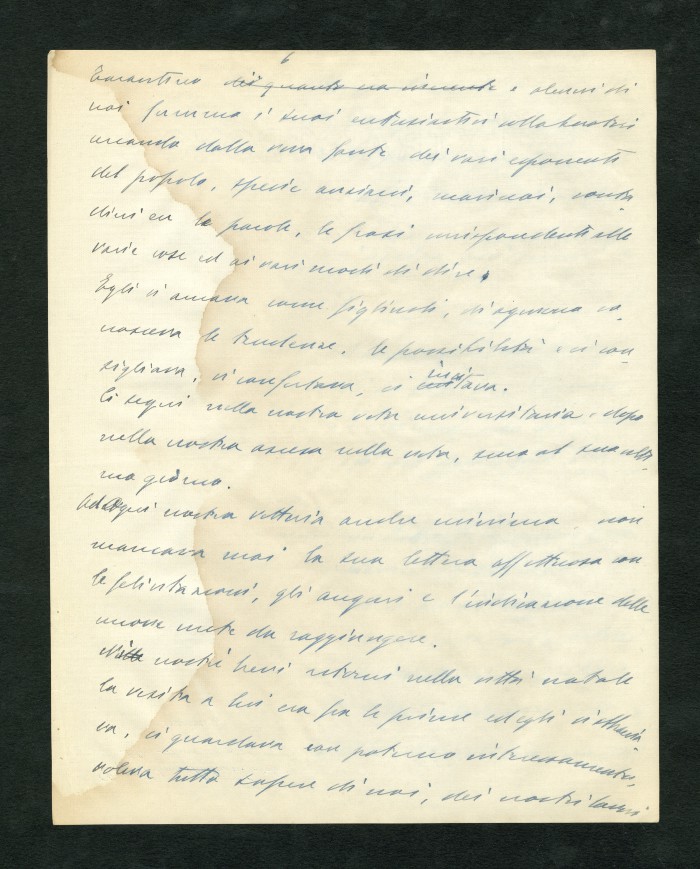 6
Tarantino e alcuni di
noi fummo i suoi entusiastici collaboratori
cercando dalla viva fonte dei vari esponenti
del popolo, specie anziani, marinai, conta-
dini ecc le parole, le frasi corrispondenti alle
varie cose ed ai vari modi di dire.
Egli ci amava come figliuoli, di ognuno co-
nosceva le tendenze, le possibilità e ci con-
sigliava, ci confortava, ci incitava.
Ci seguì nella nostra vita universitaria e dopo
nella nostra ascesa nella vita, sino al suo ulti-
mo giorno.
Ad ogni nostra vittoria anche minima non
mancava mai la sua lettera affettuosa con
le felicitazioni, gli auguri e l'indicazione delle
nuove mete da raggiungere.
nostri brevi ritorni nella città natale
la visita a lui era fra le prime ed egli ci
va, ci guardava con paterno interessamento,
voleva tutto sapere di noi, dei nostri lavori